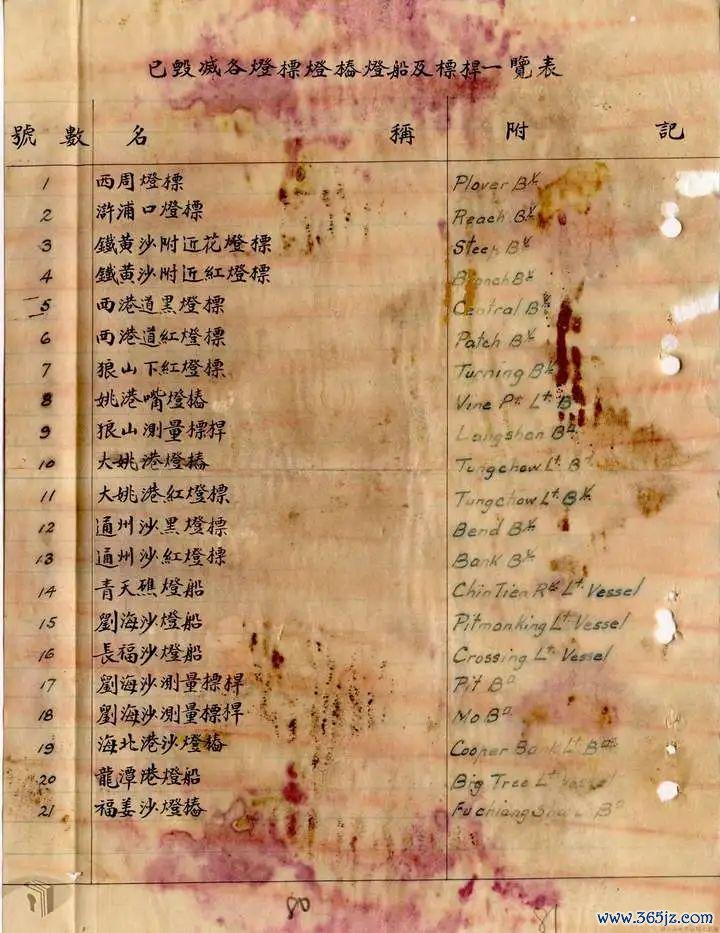 已毀滅各燈標燈樁燈船及標桿一覽表
號數 名稱 附記
1 西周燈標 Plover Bʸ
2 滸浦口燈標 Reach Bʸ
3 鐵黃沙附近花燈標 Steep Bʸ
4 鐵黃沙附近紅燈標 Branch Bʸ
5 西港道黑燈標 Central Bʸ
6 西港道紅燈標 Patch Bʸ
7 狼山下紅燈標 Turning Bʸ
8 姚港嘴燈樁 Vine Pᵗ. Lᵗ. B
9 狼山測量標桿 Langshan Bⁿ
10 大姚港燈樁 Tungchow Lᵗ. Bⁿ
11 大姚港紅燈標 Tungchow Lᵗ. Bʸ
12 通州沙黑燈標 Bend Bʸ
13 通州沙紅燈標 Bank Bʸ
14 青天礁燈船 Chin Tien Rᵏ Lᵗ. Vessel
15 劉海沙燈船 Pitmanking Lᵗ. Vessel
16 長福沙燈船 Crossing Lᵗ. Vessel
17 劉海沙測量標桿 Pit Bⁿ
18 劉海沙測量標桿 Mo Bⁿ
19 海北港沙燈樁 Cooper Bank Lᵗ.
20 龍潭港燈船 Big Tree Lᵗ. Vessel
21 福姜沙燈樁 Fuchiang Bⁿ
80
81
www.365jz.com